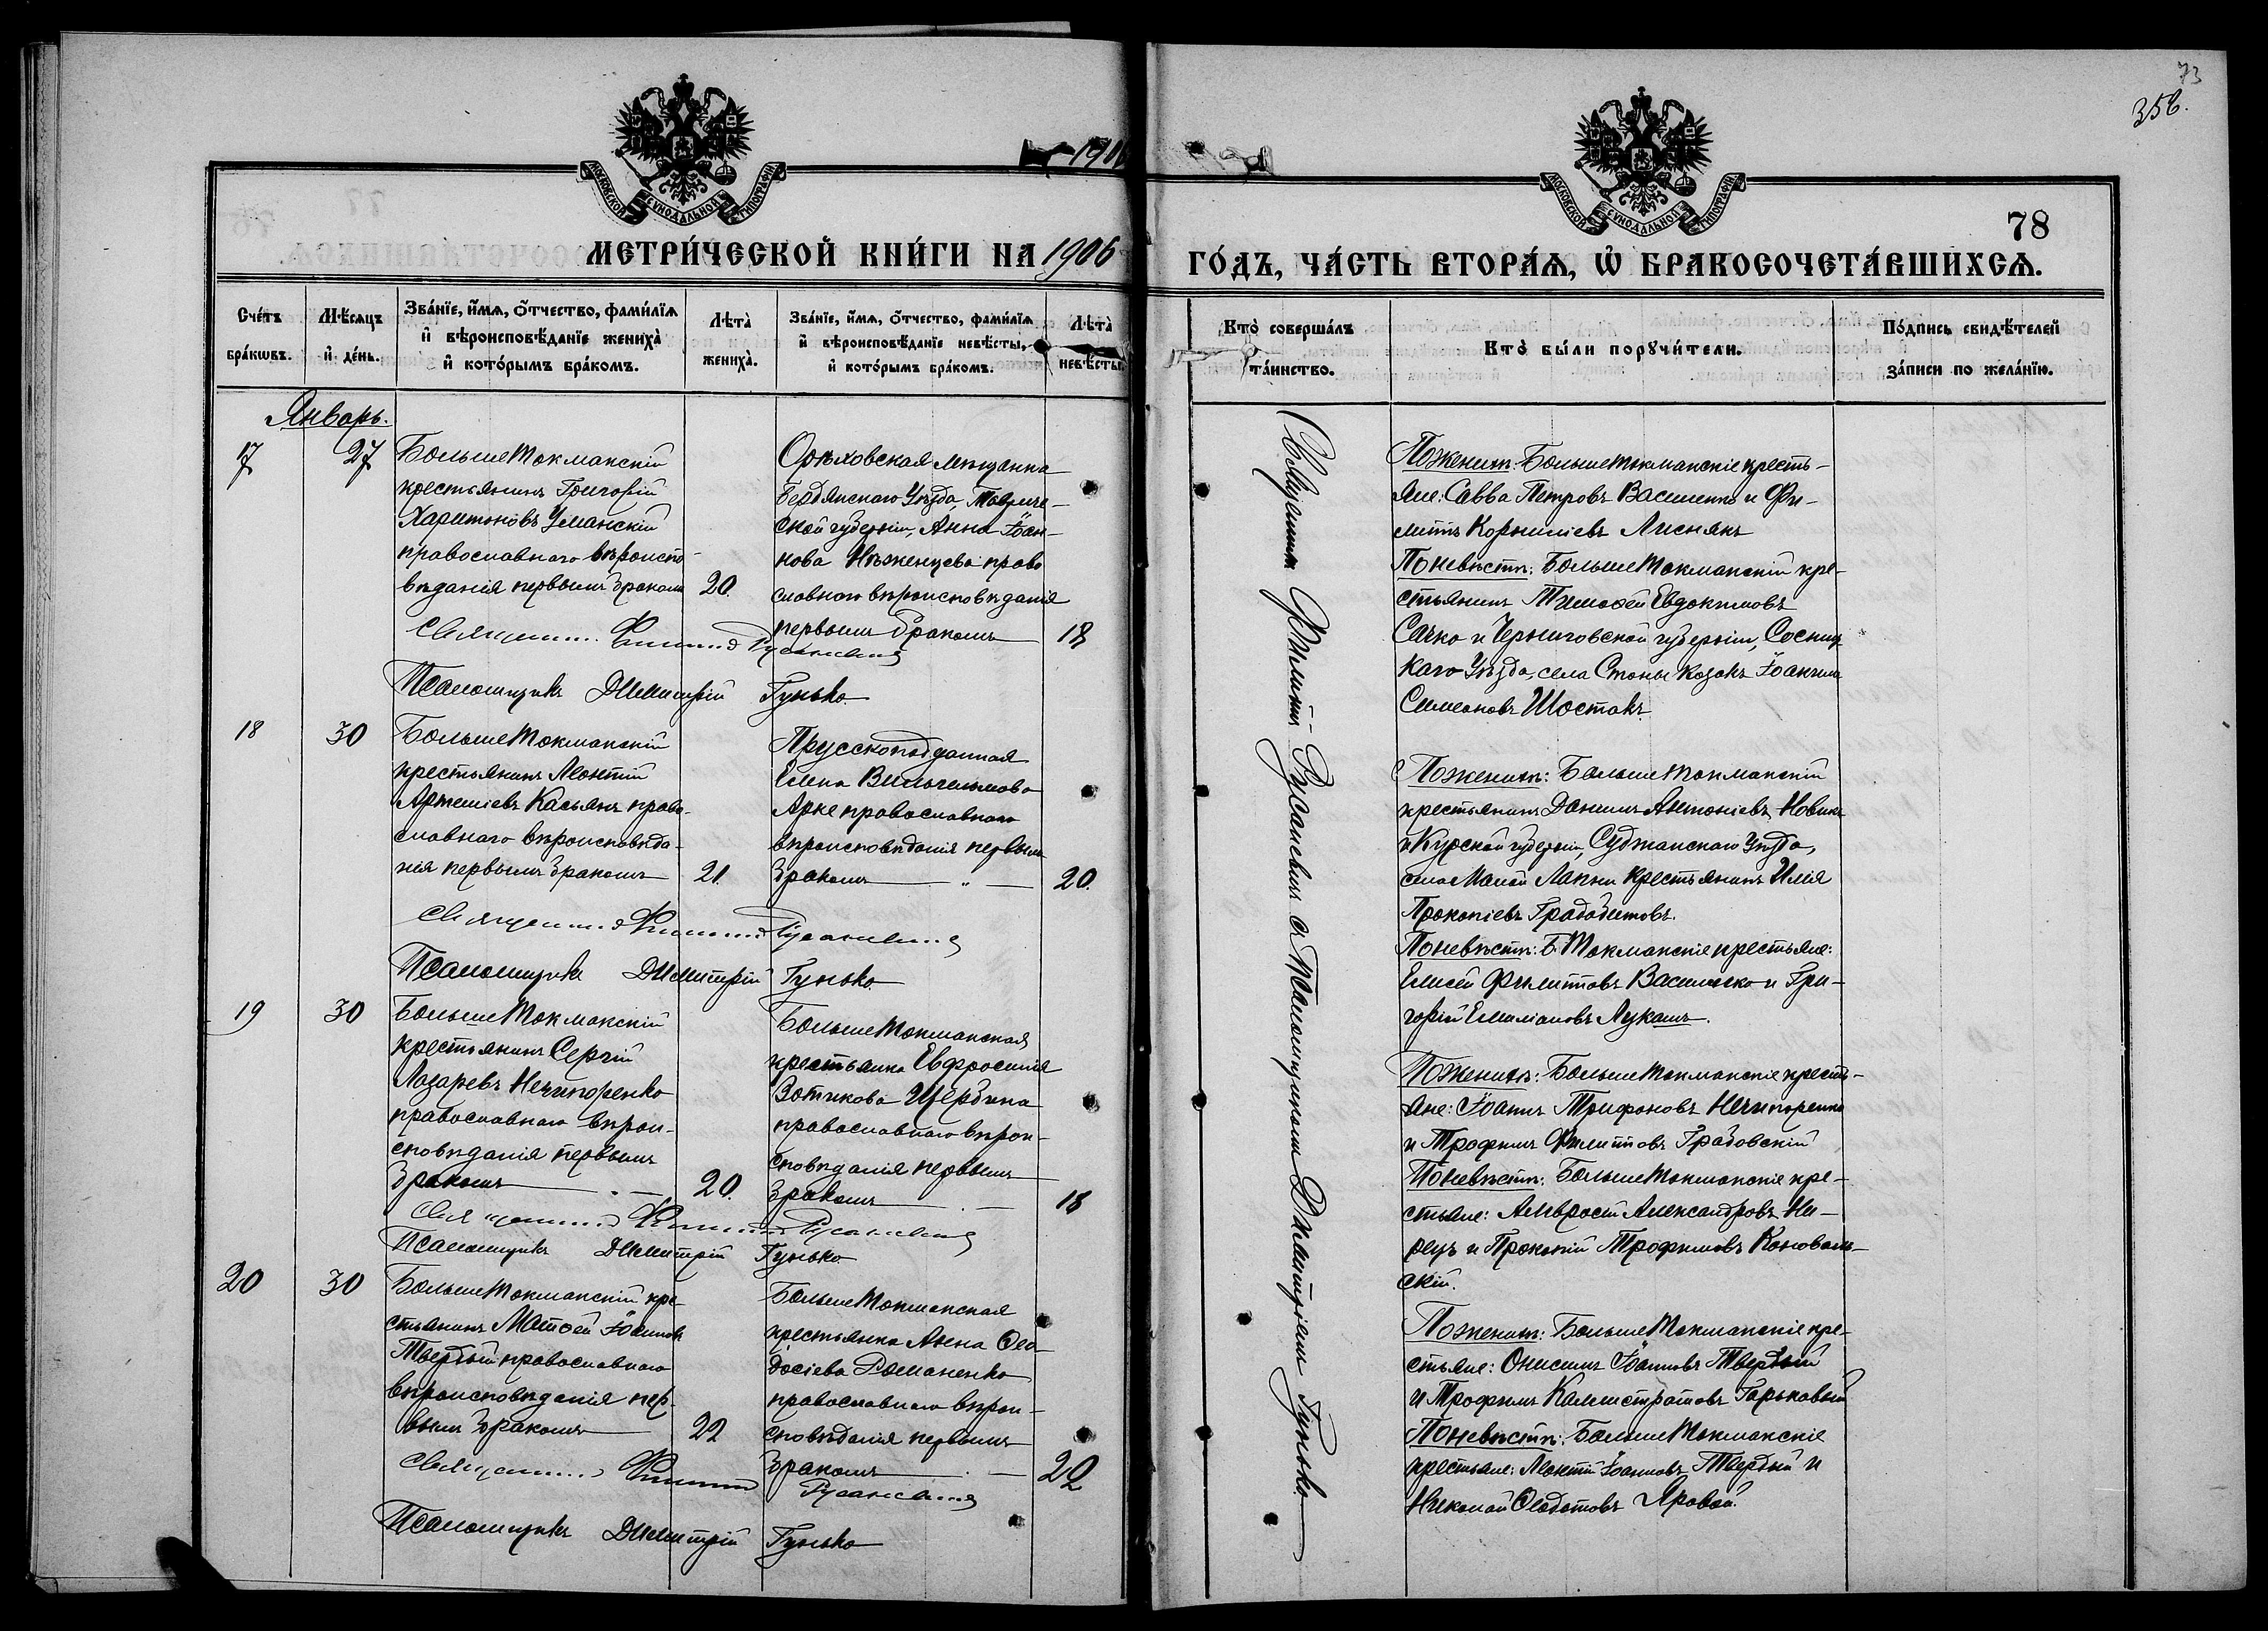 73
356.
1906
МОСКОВСКОЙ СѴНОДАЛЬНОЙ ТИПОГРАФІИ
МОСКОВСКОЙ СѴНОДАЛЬНОЙ ТИПОГРАФІИ
78
МЕТРИ́ЧЕСКОЙ КНИ́ГИ НА 1906 ГО́ДЪ, ЧА́СТЬ ВТОРА́Ѧ, Ѡ҆ БРАКОСОЧЕТА́ВШИХСѦ.
Сче́тъ бра́кѡвъ.
Мѣ́сяцъ и҆ де́нь.
Зва́нїе, и҆́мѧ, ѻ҆́тчество, фами́лїѧ
и҆ вѣроисповѣ́данїе жениха̀
и҆ кото́рымъ бра́комъ.
Лѣта̀ жениха̀.
Зва́нїе, и҆́мѧ, ѻ҆́тчество, фами́лїѧ
и҆ вѣроисповѣ́данїе невѣ́сты,
и҆ кото́рымъ бра́комъ.
Лѣта̀ невѣ́сты.
Кто̀ соверша́лъ та́инство.
Кто̀ бы́ли порꙋчи́тели.
По́дпись свидѣ́телей за́писи по жела́нїю.
Январь.
17
27
Больше Токманскій
крестьянинъ Григорій
Харитоновъ Уманскій
православнаго вѣроиспо-
вѣданія первымъ бракомъ
20.
Орѣховская мѣщанка
Бердянскаго Уѣзда, Тавриче-
ской губерніи, Анна Іоан-
нова Нѣженцева право
славнаго вѣроисповѣданія
первымъ бракомъ
18
Священникъ Филиппъ Русаневичъ
Псаломщикъ Димитрій Гунько.
Пожених: Больше Токманскіе кресть-
яне: Савва Петровъ Василенко и Фи-
липпъ Корниліевъ Лиснякъ
По невѣстѣ: Больше Токманскій кре-
стьянинъ Тимоѳей Евдокимовъ
Сачко и Черниговской губерніи, Сосниц-
каго Уѣзда, села Стоны козакъ Іоакимъ
Симеоновъ Шостакъ.
18
30
Больше Токманскій
крестьянинъ Леонтій
Артеміевъ Касьянъ право-
славнаго вѣроисповѣда-
нія первымъ бракомъ
21.
Прусскоподданная
Елена Вильгельмова
Арке православнаго
вѣроисповѣданія первымъ
бракомъ
20.
Священникъ Филиппъ Русаневичъ
Псаломщикъ Димитрій Гунько.
Пожених: Больше Токманскій
крестьянинъ Даніилъ Антоніевъ Новикъ
и Курской губерніи, Суджанскаго Уѣзда,
села Малой Лапни крестьянинъ Илія
Прокопіевъ
По невѣстѣ: Б. Токманскіе крестьяне:
Елисей Филипповъ Василенко и Гри-
горій Емиліановъ Лукашъ.
19
30
Больше Токманскій
крестьянинъ Сергій
Лазаревъ Нечипоренко
православнаго вѣрои-
сповѣданія первымъ
бракомъ
20.
Больше Токманская
крестьянка Евфросинія
Зотикова Щербина
православнаго вѣрои-
сповѣданія первымъ
бракомъ
18
Священникъ Филиппъ Русаневичъ
Псаломщикъ Димитрій Гунько.
Пожених: Больше Токманскіе кресть-
яне: Іоаннъ Трифоновъ Нечипоренко
и Трофимъ Филипповъ Грабовскій
По невѣстѣ: Больше Токманскіе кре-
стьяне: Амвросій Александровъ
и Прокопій Трофимовъ Коноваль-
скій.
20
30
Больше Токманскій кре-
стьянинъ Матѳей Іоанновъ
Твердый православнаго
вѣроисповѣданія пер-
вымъ бракомъ
22
Больше Токманская
крестьянка Анна Ѳео-
досіева Романенко
православнаго вѣрои-
сповѣданія первымъ
бракомъ
20
Священникъ Филиппъ Русаневичъ
Псаломщикъ Димитрій Гунько
Пожених: Больше Токманскіе кре-
стьяне: Онисимъ Іоанновъ Твердый
и Трофимъ Каллистратовъ Гарьковый
По невѣстѣ: Больше Токманскіе
крестьяне: Леонтій Іоанновъ Твердый и
Николай Ѳеодотовъ Яровой.
Священникъ Филиппъ Русаневичъ съ Псаломщикомъ Димитріемъ Гунько.